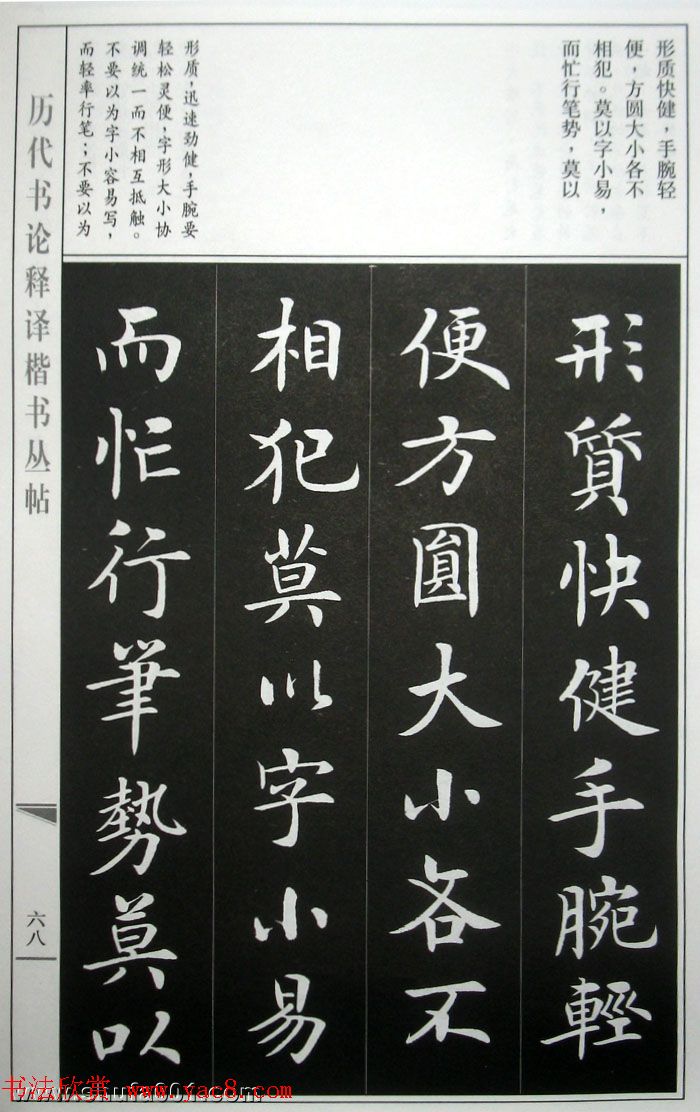 形质快健，手腕轻
便，方圆大小各不
相犯。莫以字小易，
而忙行笔势，莫以
形质，迅速劲健，手腕要
轻松灵便，字形大小协
调统一而不相互抵触。
不要以为字小容易写，
而轻率行笔；不要以为
形質快健手腕輕
便方圓大小各不
相犯莫以字小易
而忙行筆勢莫以
历代书论释译楷书丛帖
六八
书法欣赏 www.yac8.com